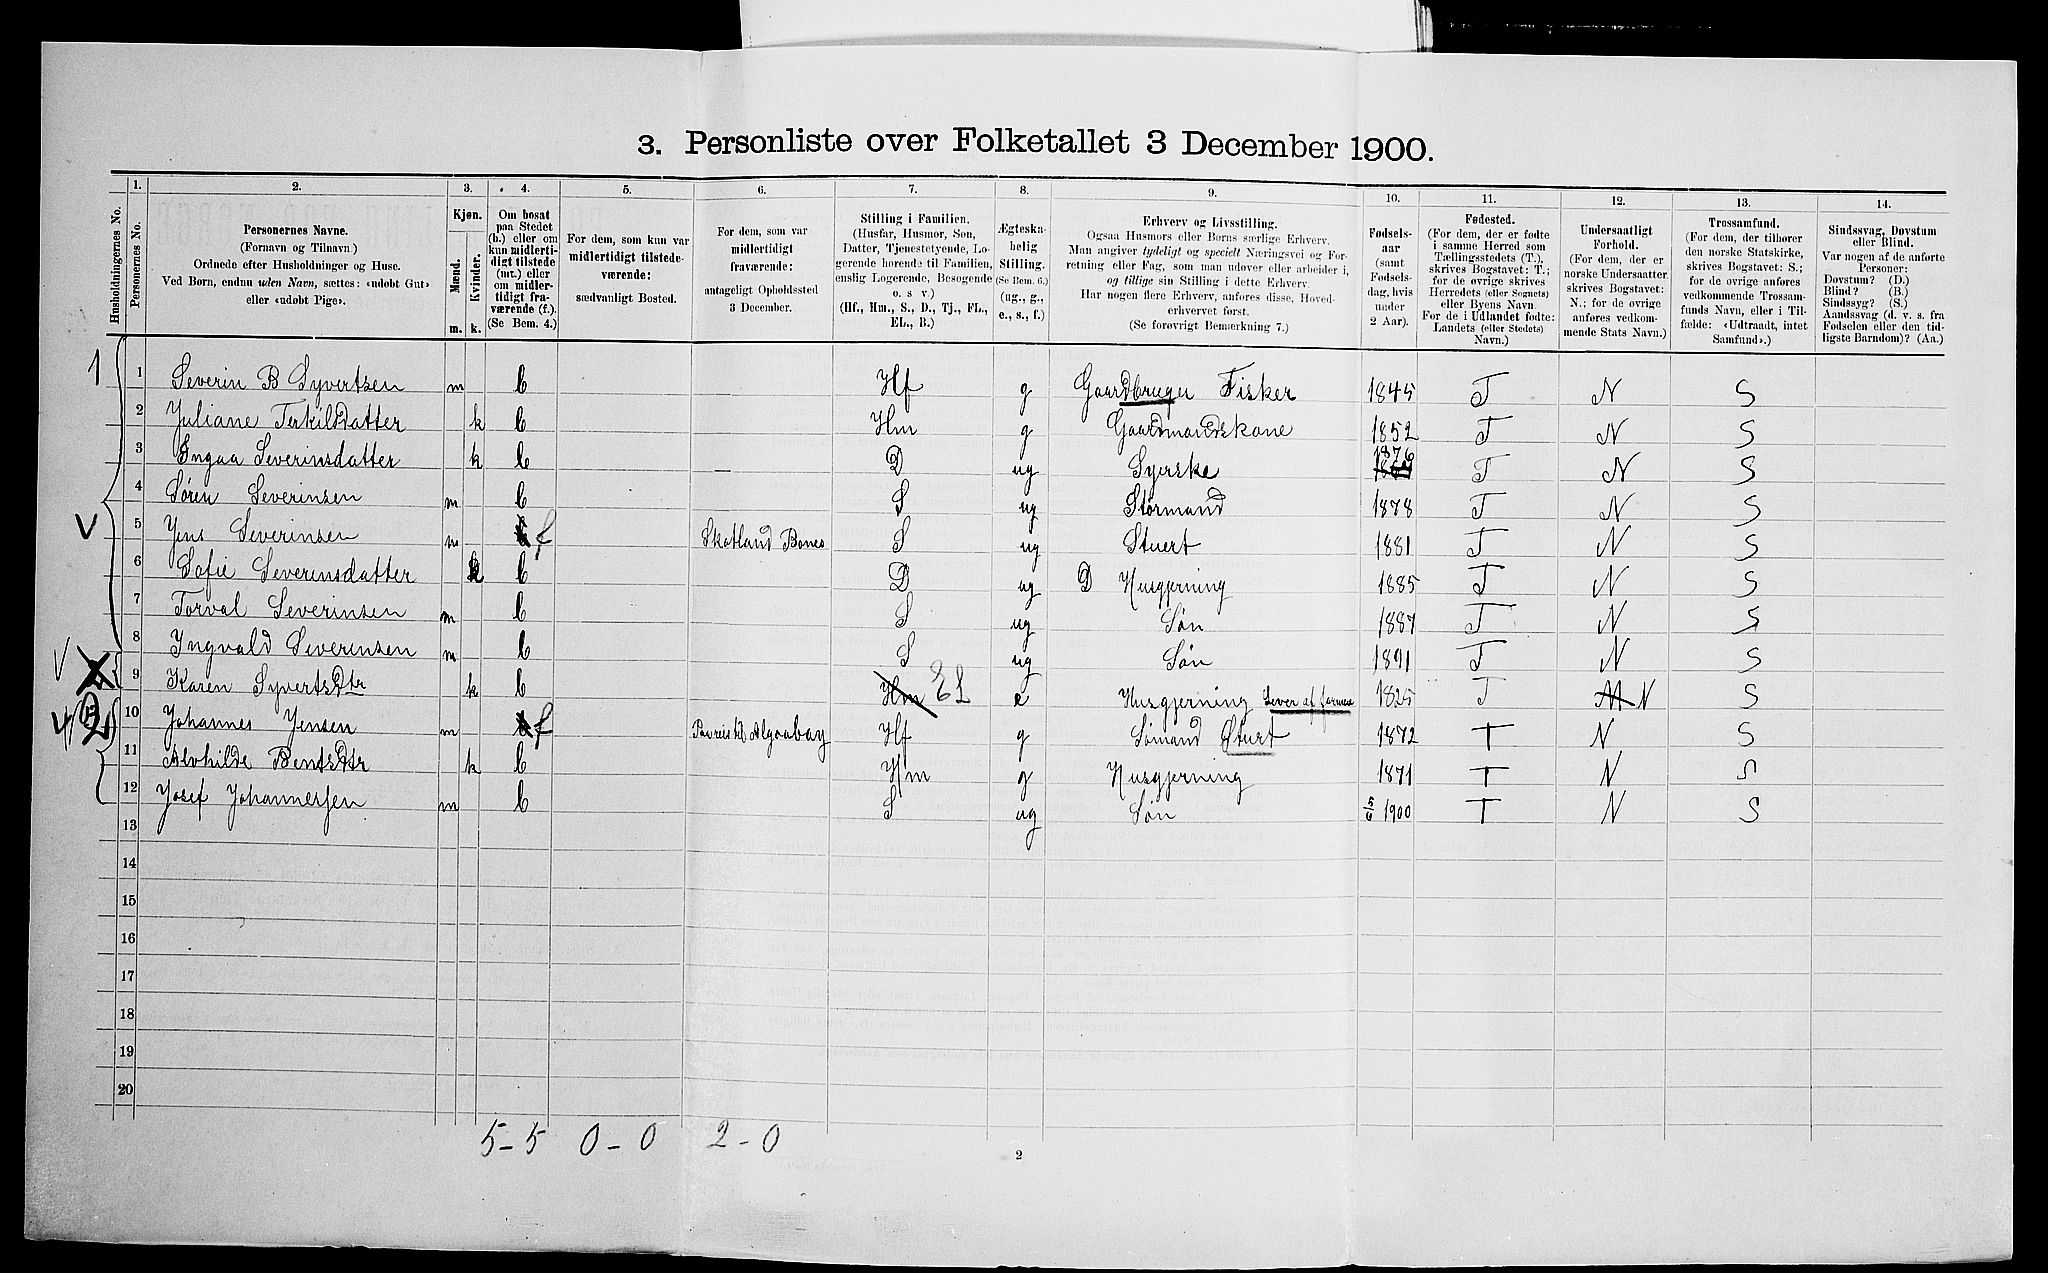 3. Personliste over Folketallet 3 December 1900.
Husholdningernes No.
1. Personernes No.
2. Personernes Navne. (Fornavn og Tilnavn.) Ordnede efter Husholdninger og Huse. Ved Børn, endnu uden Navn, sættes: «udøbt Gut» eller «udøbt Pige».
3. Kjøn. Mænd. Kvinder. m. k.
4. Om bosat paa Stedet (b.) eller om kun midlertidigt tilstede (mt.) eller om midlertidigt fraværende (f.). (Se Bem. 4.)
5. For dem, som kun var midlertidigt tilstedeværende: sædvanligt Bosted.
6. For dem, som var midlertidigt fraværende: antageligt Opholdssted 3 December.
7. Stilling i Familien. (Husfar, Husmor, Søn, Datter, Tjenestetyende, Logerende hørende til Familien, enslig Logerende, Besøgende o. s v.) (Hf., Hm., S., D., Tj., FL., EL., B.)
8. Ægteskabelig Stilling. (Se Bem. 6.) (ug., g., e., s., f.)
9. Erhverv og Livsstilling. Ogsaa Husmors eller Børns særlige Erhverv. Man angiver tydeligt og specielt Næringsvei og Forretning eller Fag, som man udøver eller arbeider i, og tillige sin Stilling i dette Erhverv. Har nogen flere Erhverv, anføres disse, Hovederhvervet først. (Se forøvrigt Bemærkning 7.)
10. Fødselsaar (samt Fødselsdag, hvis under 2 Aar).
11. Fødested. (For dem, der er fødte i samme Herred som Tællingsstedets (T.), skrives Bogstavet: T.; for de øvrige skrives Herredets (eller Sognets) eller Byens Navn. For de i Udlandet fødte: Landets (eller Stedets) Navn.)
12. Undersaatligt Forhold. (For dem, der er norske Undersaatter, skrives Bogstavet: N.; for de øvrige anføres vedkommende Stats Navn.)
13. Trossamfund. (For dem, der tilhører den norske Statskirke, skrives Bogstavet: S.; for de øvrige anføres vedkommende Trossamfunds Navn, eller i Tilfælde: «Udtraadt, intet Samfund».)
14. Sindssvag, Døvstum eller Blind. Var nogen af de anførte Personer: Døvstum? (D.) Blind? (B.) Sindssyg? (S.) Aandssvag (d. v. s. fra Fødselen eller den tidligste Barndom)? (Aa.)
1 1 Severin B Syvertsen m b Hf g Gaardbruger Fisker 1845 T N S
2 Juliane Terkildsdatter k b Hm g Gaardmandskone 1852 T N S
3 Ingaa Severinsdatter k b D ug Syerske 1876 T N S
4 Søren Severinsen m b S ug Størmand 1878 T N S
V 5 Jens Severinsen m f Skotland Bones S ug Stuert 1881 T N S
6 Sofie Severinsdatter k b D ug D Husgjerning 1885 T N S
7 Torval Severinsen m b S ug Søn 1887 T N S
8 Ingvald Severinsen m b S ug Søn 1891 T N S
V 9 Karen Syvertsdtr k b Hm EL e Husgjerning Lever af formue 1825 T N S
V 2 10 Johannes Jensen m f Algoabay Hf g Sømand Sturt 1872 T N S
11 Alvhilde Bentsdtr k b Hm g Husgjerning 1871 T N S
12 Josef Johannessen m b S ug Søn 5/6 1900 T N S
13
14
15
16
17
18
19
20
5-5 0-0 2-0
2